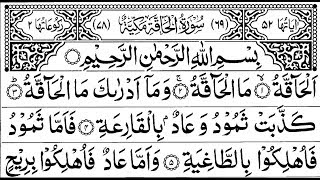 اٰيَاتُهَا ٥٢ (٦٩) سُوْرَةُ الْحَآقَّةِ مَكِّيَّةٌ (٤٨) رُكُوْعَاتُهَا ٢
بِسْمِ اللهِ الرَّحْمٰنِ الرَّحِيْمِ
اَلْحَآقَّةُ ۙ﴿١﴾ مَا الْحَآقَّةُ ۚ﴿٢﴾ وَمَآ اَدْرٰىكَ مَا الْحَآقَّةُ ؕ﴿٣﴾
كَذَّبَتْ ثَمُوْدُ وَ عَادٌۢ بِالْقَارِعَةِ ﴿٤﴾ فَاَمَّا ثَمُوْدُ
فَاُهْلِكُوْا بِالطَّاغِيَةِ ﴿٥﴾ وَاَمَّا عَادٌ فَاُهْلِكُوْا بِرِيْحٍ